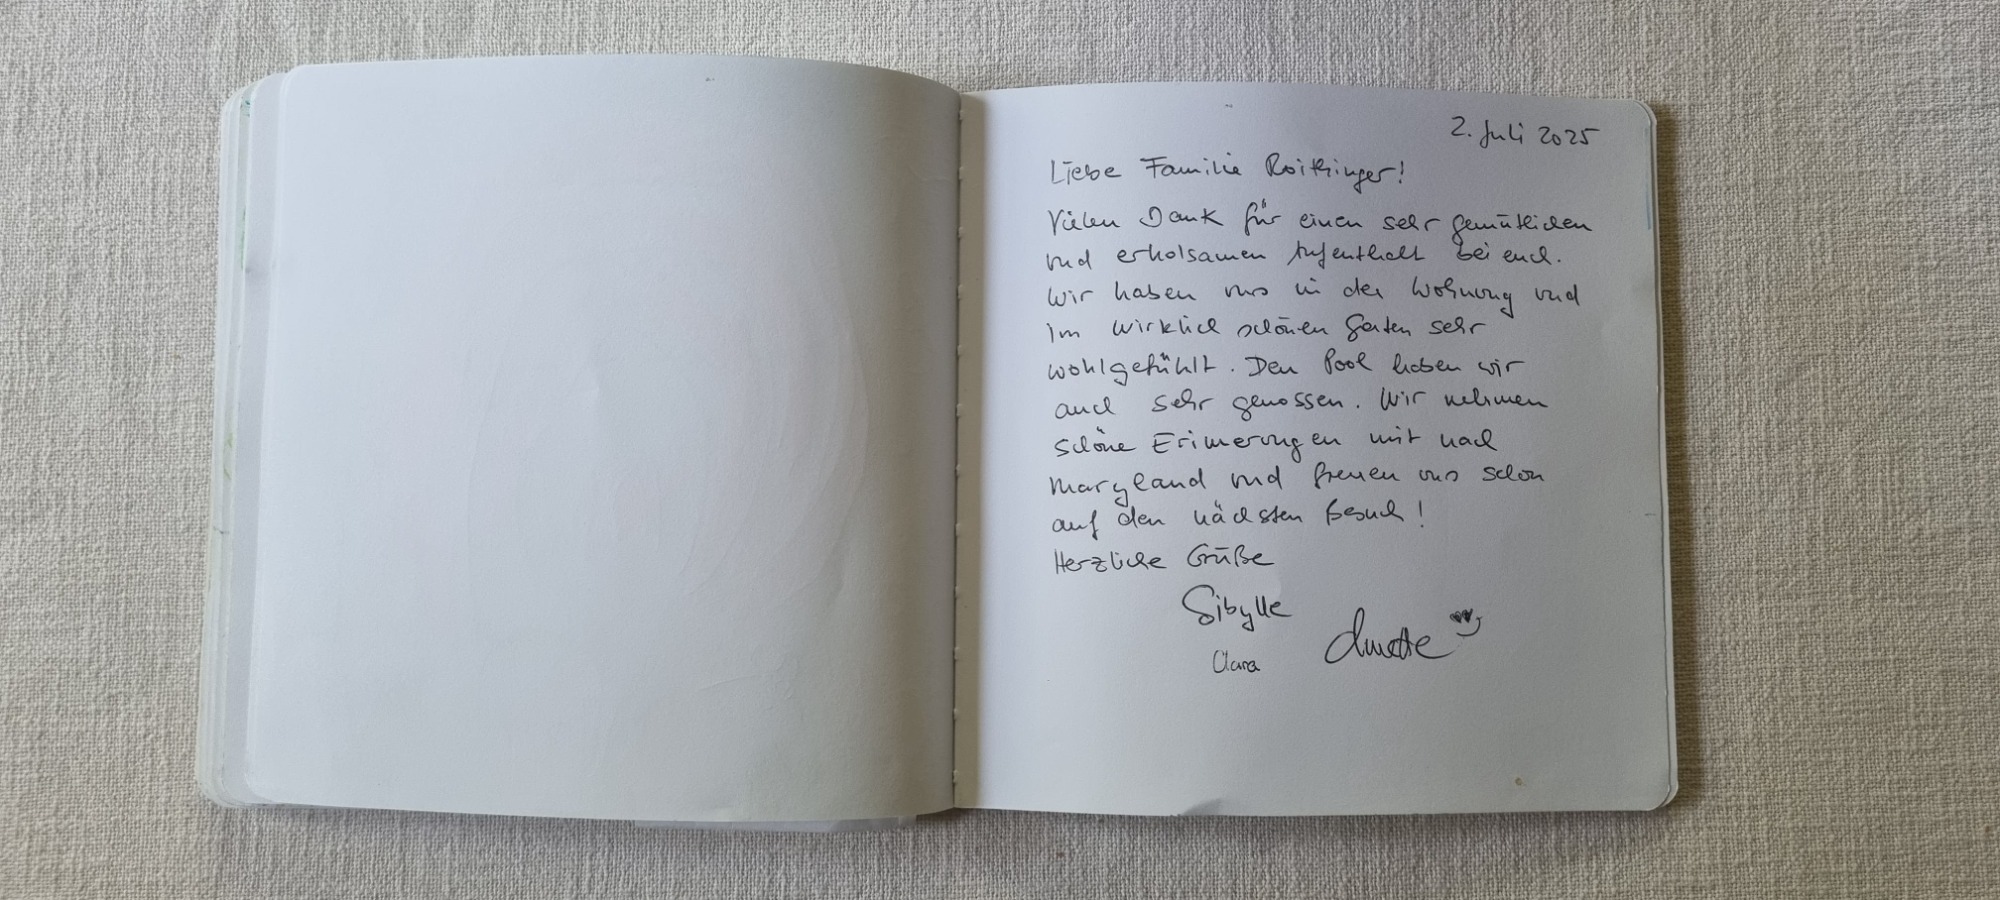 2. Juli 2025
Liebe Familie Roithinger!
Vielen Dank für einen sehr gemütlichen
und erholsamen Aufenthalt bei euch.
Wir haben uns in der Wohnung und
im wirklich schönen Garten sehr
wohlgefühlt. Den Pool haben wir
auch sehr genossen. Wir nehmen
schöne Erinnerungen mit nach
Maryland und freuen uns schon
auf den nächsten Besuch!
Herzliche Grüße
Sibylle
Clara